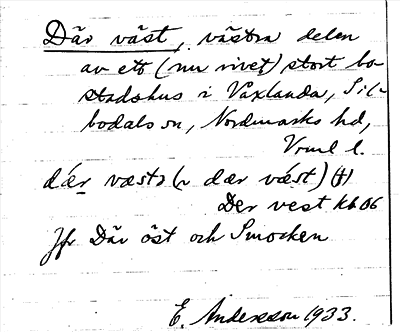 Där väst, västra delen
av ett (nu rivet) stort bo-
stadshus i Vaxlanda, Sil-
bodals sn, Nordmarks hd,
Vrml l.
dér væstə (~ dær vést) (†)
Der vest kb 06
Jfr Där öst och Smocken
E. Andersson 1933.